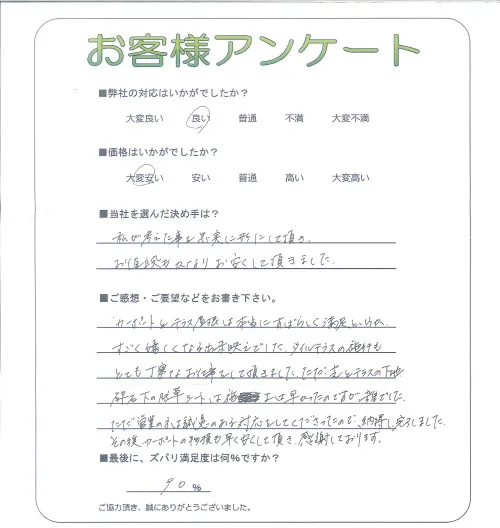 お客様アンケート
■弊社の対応はいかがでしたか？
大変良い 良い 普通 不満 大変不満
■価格はいかがでしたか？
大変安い 安い 普通 高い 大変高い
■当社を選んだ決め手は？
私が考えた事を忠実に形にして頂き、
お値段もかなりお安くして頂きました。
■ご感想・ご要望などをお書き下さい。
カーポートとテラス屋根は本当にすばらしく満足というか、
すごく嬉しくなる出来映えでした。タイルテラスの施行も
とても丁寧なお仕事をして頂きました。ただ、テラスの下地
砕石下の防草シートは 早かったのですが雑でした。
ただ営業の 誠意のある対応をしてくださったので、納得し完了しました。
その後、カーポートの 早く安くして頂き、感謝しております。
■最後に、ズバリ満足度は何%ですか？
90 %
ご協力頂き、誠にありがとうございました。